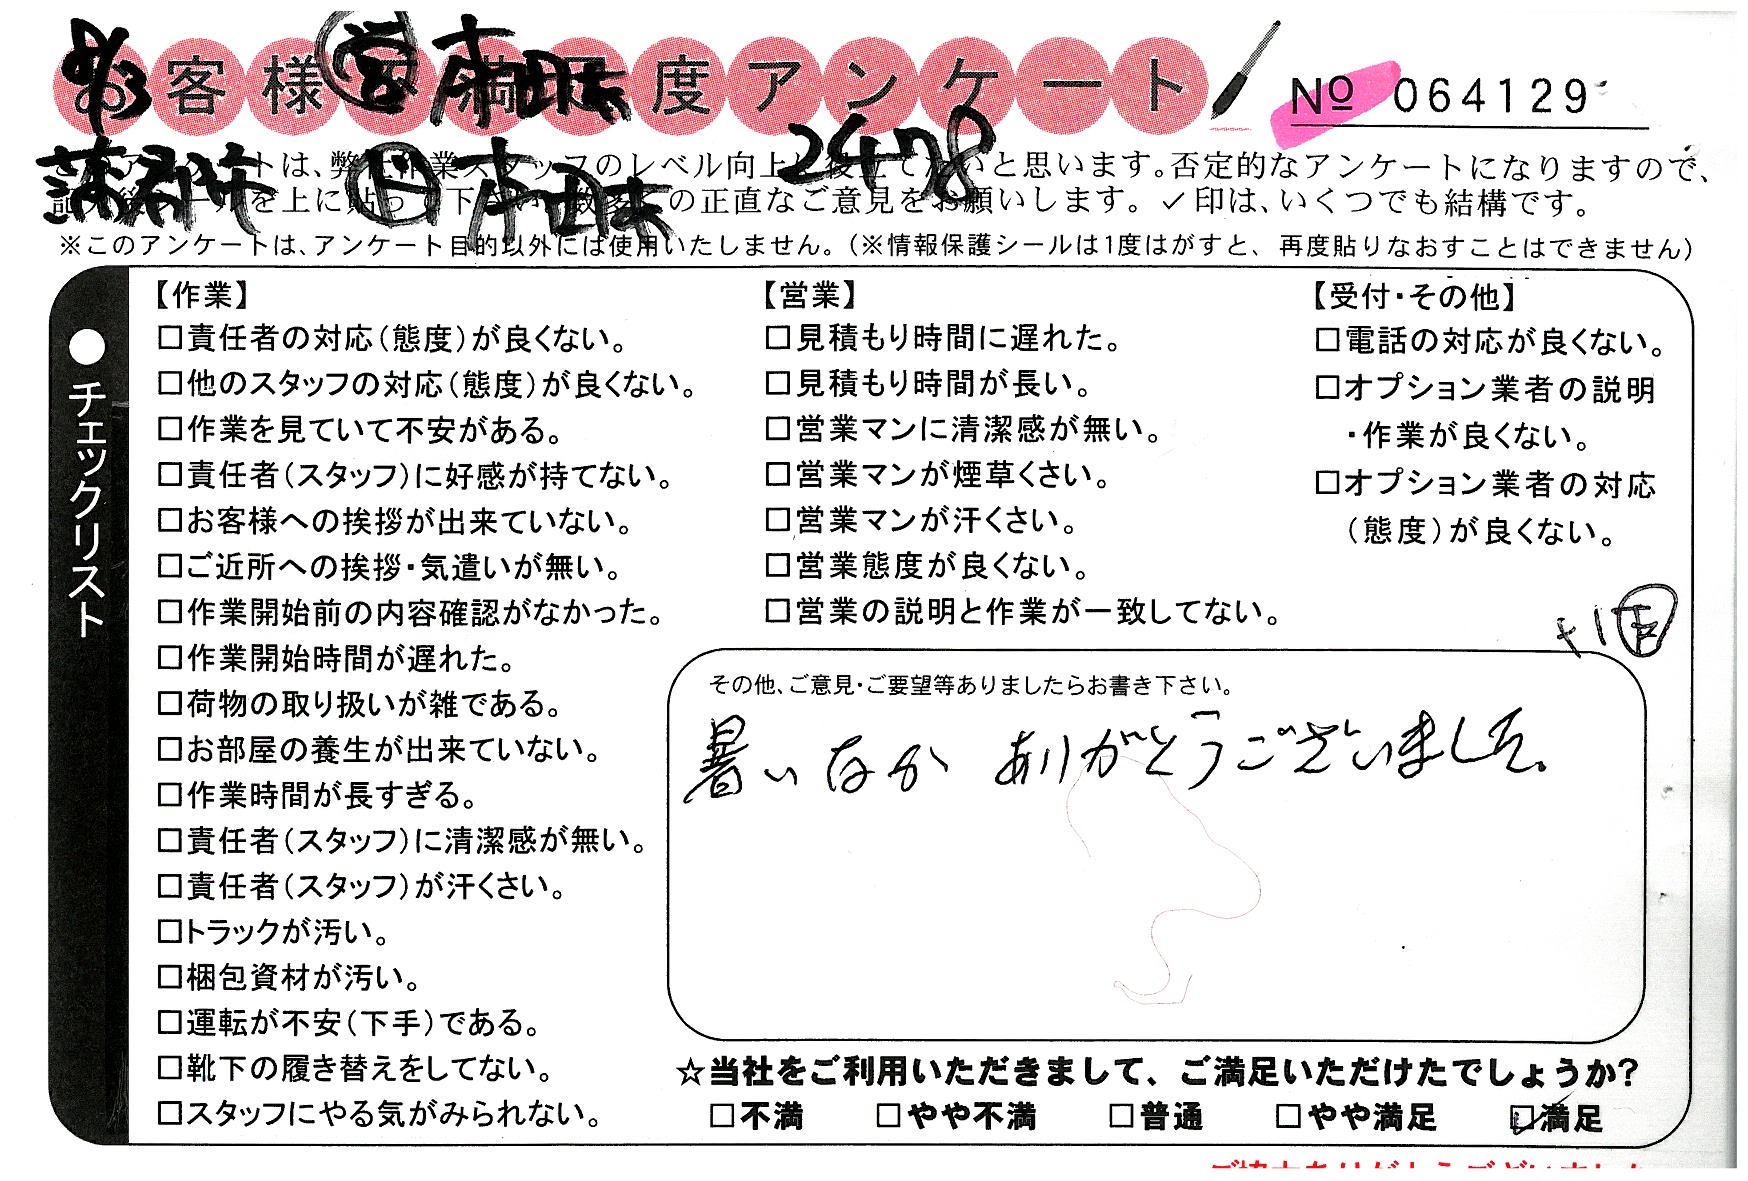 お客様不満足度アンケート
№ 064129
8/3 営 本田
2478
蒲郡市 作 本田
このアンケートは、弊社作業スタッフのレベル向上に役立てたいと思います。否定的なアンケートになりますので、
記入後シールを上に貼って下さい。数多くの正直なご意見をお願いします。✓印は、いくつでも結構です。
※このアンケートは、アンケート目的以外には使用いたしません。(※情報保護シールは1度はがすと、再度貼りなおすことはできません)
●チェックリスト
【作業】
□責任者の対応(態度)が良くない。
□他のスタッフの対応(態度)が良くない。
□作業を見ていて不安がある。
□責任者(スタッフ)に好感が持てない。
□お客様への挨拶が出来ていない。
□ご近所への挨拶・気遣いが無い。
□作業開始前の内容確認がなかった。
□作業開始時間が遅れた。
□荷物の取り扱いが雑である。
□お部屋の養生が出来ていない。
□作業時間が長すぎる。
□責任者(スタッフ)に清潔感が無い。
□責任者(スタッフ)が汗くさい。
□トラックが汚い。
□梱包資材が汚い。
□運転が不安(下手)である。
□靴下の履き替えをしてない。
□スタッフにやる気がみられない。
【営業】
□見積もり時間に遅れた。
□見積もり時間が長い。
□営業マンに清潔感が無い。
□営業マンが煙草くさい。
□営業マンが汗くさい。
□営業態度が良くない。
□営業の説明と作業が一致してない。
【受付・その他】
□電話の対応が良くない。
□オプション業者の説明
・作業が良くない。
□オプション業者の対応
(態度)が良くない。
+1
その他、ご意見・ご要望等ありましたらお書き下さい。
暑いなか ありがとうございました。
☆当社をご利用いただきまして、ご満足いただけたでしょうか?
□不満 □やや不満 □普通 □やや満足 ☑満足
ご協力ありがとうございました